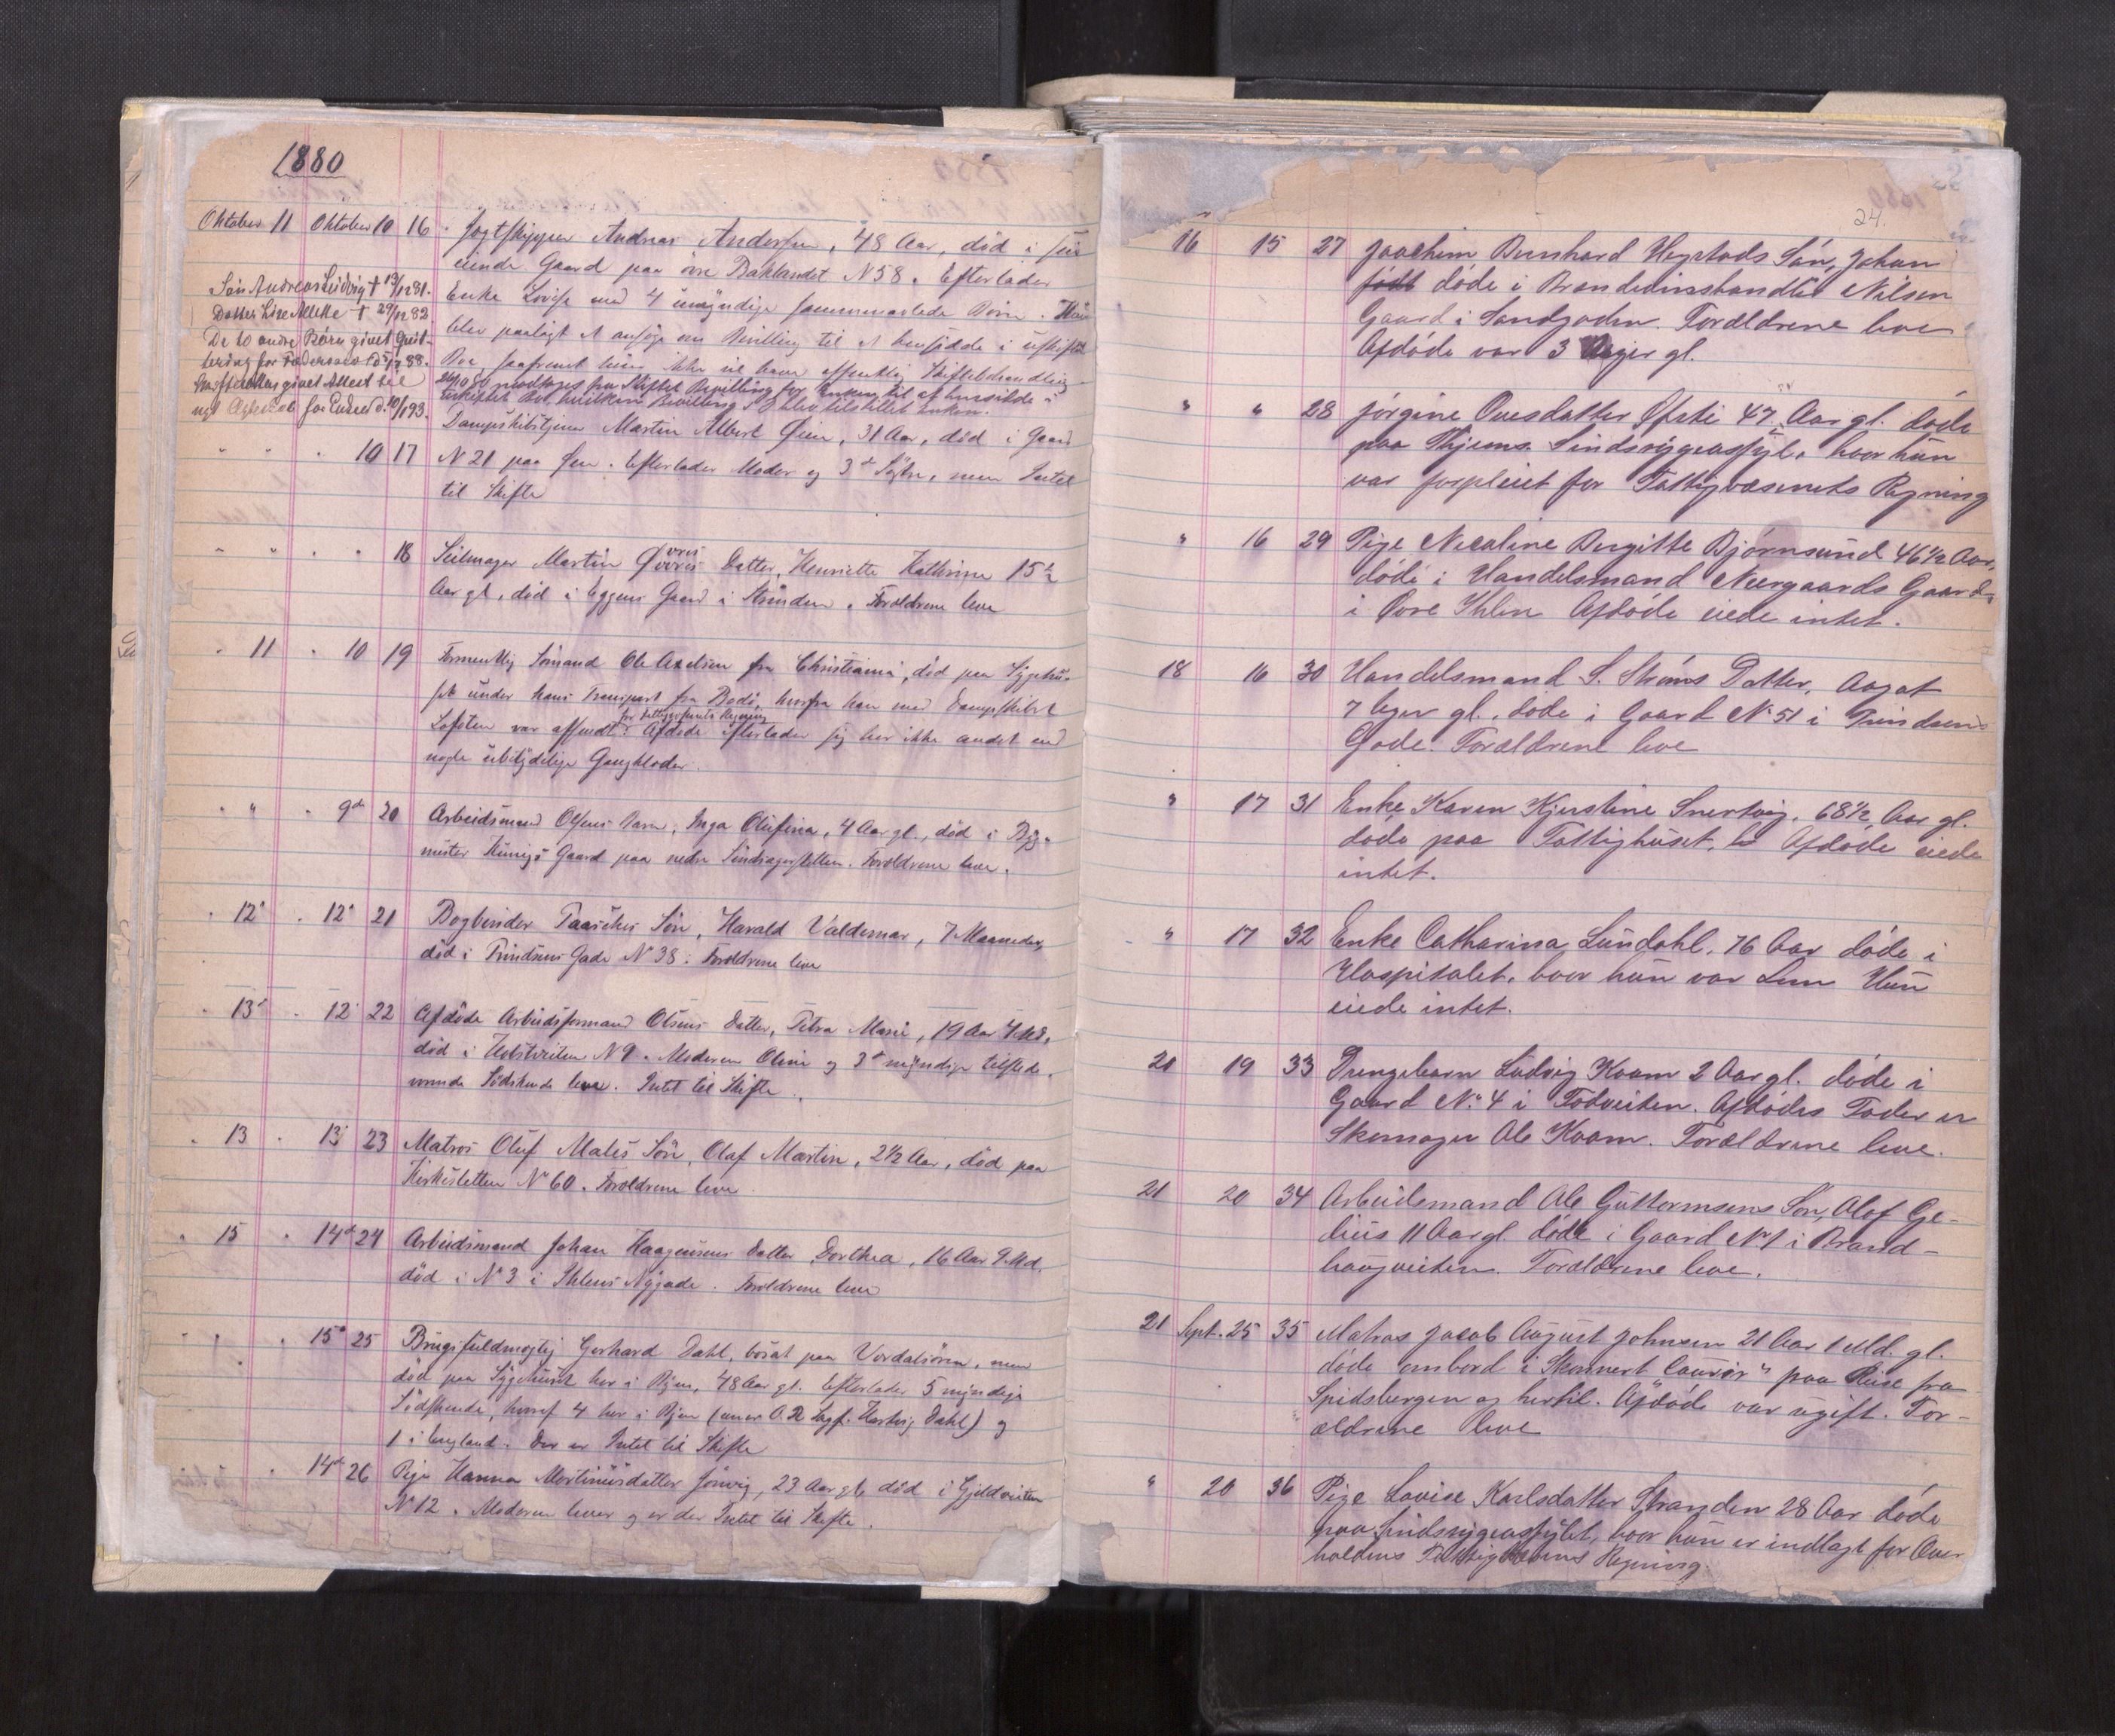 1880
Oktober 11 Oktober 10 16 Jagtskipper Andreas Andersen, 48 Aar, död i sin
eiende Gaard paa övre Baklandet N 58. Efterlader
Enke Lovise med 4 umyndige sammenavlede Börn. Hun
blev paalagt at ansöge om Bevilling til at hensidde i uskiftet
Bo saafremt hun ikke vil have offentlig Skiftebehandling
modtages fra Stiftet Bevilling for Enken til at hensidde i
uskiftet Bo, hvilken Bevilling blev tilstillet Enken.
Sön Andreas Ludvig † 13/12 81.
Datter Lise Mette † 29/12 82
De to andre Börn givet Qvit-
tering for Fædrearv 88.
givet Attest til
for Enken d. 10/1 93.
" " " 10 17 Dampskibstjener Martin Albert Øien, 31 Aar, död i Gaard
N 21 paa Øen. Efterlader Moder og 3 Søstre, men Intet
til Skifte
" " " " 18 Seilmager Martin Datter, Henriette Kathrine 15½
Aar gl., död i Eggens Gaard i Strinden. Forældrene leve
" 11 " 10 19 Formentlig Sömand Ole Axelsen fra Christiania, död paa Sygehu-
set under hans Transport fra Bodö, hvorfra han med Dampskibet
Lofoten var afsendt for Fattigvæsenets Regning. Afdöde efterlader sig her ikke andet end
nogle ubetydelige Gangklæder.
" " " 9de 20 Arbeidsmand Olsens Barn, Inga Olufina, 4 Aar gl., död i Byg-
mester Königs Gaard paa nedre Sindsagersletten. Forældrene leve.
" 12' " 12' 21 Bogbinder Taasches Sön, Harald Valdemar, 7 Maaneder,
död i Prindsens Gade N 38. Forældrene leve
" 13' " 12' 22 Afdöde Arbeidsformand Olsens Datter, Petra Marie, 19 Aar 4 Md,
död i Holstveiten N 9. Moderen Oline og 3 myndige tilstede-
værende Södskende leve. Intet til Skifte.
" 13 " 13' 23 Matros Oluf Males Sön, Olaf Martin, 2½ Aar, död paa
Kirkesletten N 60. Forældrene leve.
" 15 " 14de 24 Arbeidsmand Johan Haagensens Datter Dorthea, 16 Aar 9 Md.
död i N 3 i Ihlens Nygade. Forældrene leve
" " " 15de 25 Brugsfuldmægtig Gerhard Dahl, bosat paa Verdalsören, men
död paa Sygehuset her i Byen, 48 Aar gl. Efterlader 5 myndige
Södskende, hvoraf 4 her i Byen (une O.R Sagf. Hartvig Dahl) og
1 i England. Der er Intet til Skifte
" 14de 26 Pige Hanna Mortinusdatter Jönvig, 23 Aar gl, död i Gjeldveiten
N 12. Moderen lever og er der Intet til Skifte.
24.
16 15 27 Joachim Bernhard Hegstads Sön, Johan
födt döde i Brændevinshandler Nilsen
Gaard i Sandgaden. Forældrene leve
Afdöde var 3 Uger gl.
" " 28 Jörgine Onesdatter Ofsti 47 Aar gl. döde
paa Thjems. Sindssygeasyl, hvor hun
var forpleiet for Fattigvæsenets Regning
" 16 29 Pige Nicaline Birgitte Bjørnsund 46½ Aar,
döde i Handelsmand Neergaards Gaard
i Övre Ihlen Afdöde eiede intet.
18 16 30 Handelsmand S. Ströms Datter, Aagot
7 Uger gl., döde i Gaard N. 51 i Prindsens
Gade. Forældrene leve
" 17 31 Enke Karen Kjerstine Snertvig, 68½ Aar gl.
döde paa Fattighuset. Afdöde eiede
intet.
" 17 32 Enke Catharina Lundahl, 76 Aar döde i
Hospitalet, hvor hun var Lem Hun
eiede intet.
20 19 33 Drengebarn Ludvig Kvam 2 Aar gl. döde i
Gaard N. 4 i Fodveiten. Afdödes Fader er
Skomager Ole Kvam. Forældrene leve.
21 20 34 Arbeidsmand Ole Guttormsens Sön, Olaf Ge-
lius 11 Aar gl. döde i Gaard N. 1 i Brand-
haugveiten. Forældrene leve.
21 Sept. 25 35 Matros Jacob August Johnsen 21 Aar 1 Md. gl.
döde ombord i Skonnert "Caurör" paa Reise fra
Spidsbergen og hertil. Afdöde var ugift. For-
ældrene leve
" 20 36 Pige Lovise Karlsdatter Stranden 28 Aar döde
paa Sindssygeasylet, hvor hun er indlagt for Över
haldens Fattigvæsens Regning.